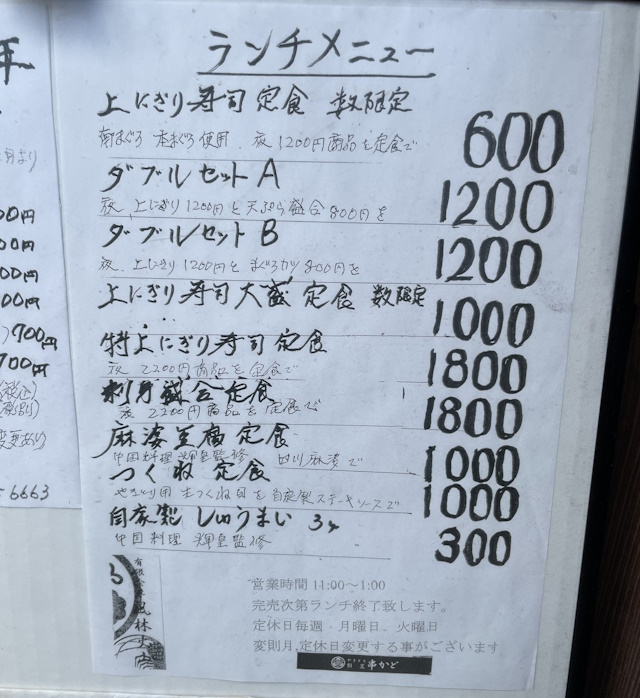 ランチメニュー
上にぎり寿司定食 数限定
南まぐろ 本まぐろ使用、夜1200円商品を定食で 600
ダブルセットA
夜、上にぎり1200円と天ぷら盛合800円を 1200
ダブルセットB
夜、上にぎり1200円とまぐろカツ800円を 1200
上にぎり寿司大盛定食 数限定 1000
特上にぎり寿司定食
夜2200円商品を定食で 1800
刺身盛合定食
夜2200円商品を定食で 1800
麻婆豆腐定食
中国料理 輝皇監修 四川麻婆で 1000
つくね定食
自家製ステーキソースで 1000
自家製しゅうまい 3ヶ
中国料理 輝皇監修 300
営業時間 11:00～1:00
完売次第ランチ終了致します。
定休日毎週・月曜日、火曜日
変則月、定休日変更する事がございます
串かど
00円
00円
00円
00円
700円
700円
変更あり
6663